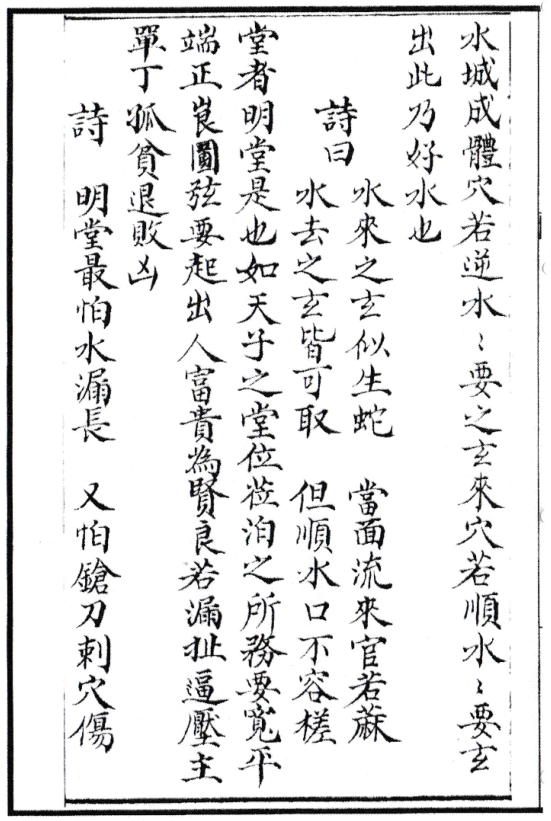 水城成體穴若逆水〻要之玄來穴若順水〻要玄
出此乃好水也
詩曰
水來之玄似生蛇　當面流來官若蔴
水去之玄皆可取　但順水口不容槎
堂者明堂是也如天子之堂位蒞泊之所務要寬平
端正崀圓弦要起出人富貴為賢良若漏扯逼壓主
單丁孤貧退敗凶
詩　明堂最怕水漏長　又怕鎗刀刺穴傷